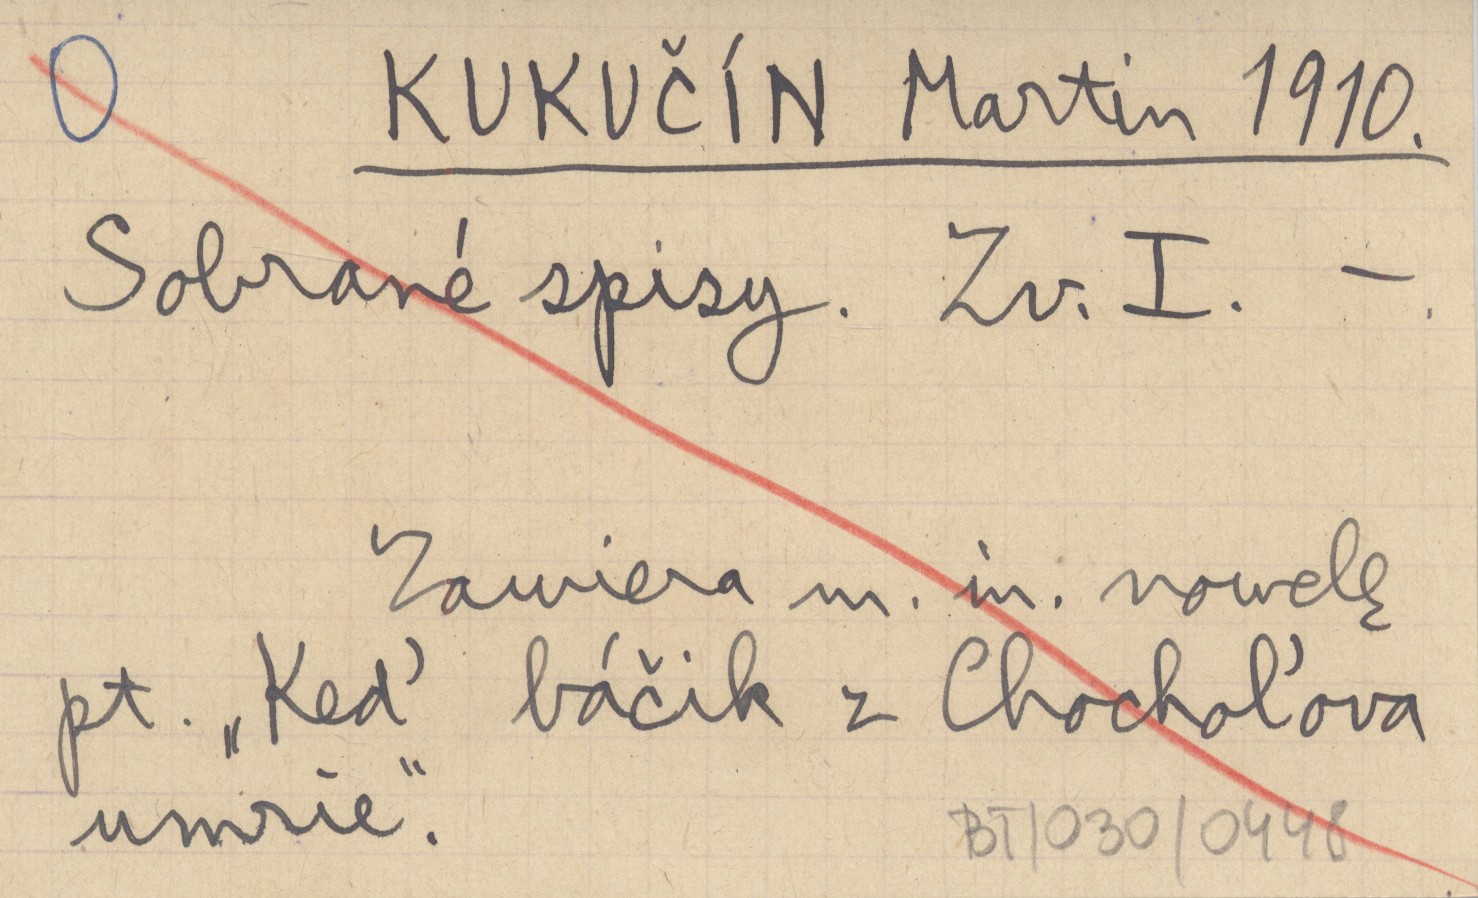 O KUKUČÍN Martin 1910.
Sobrané spisy. Zv. I. – .
Zawiera m. in. nowelę
pt. „Keď báčik z Chochoľova
umrie“.
BT/030/0448